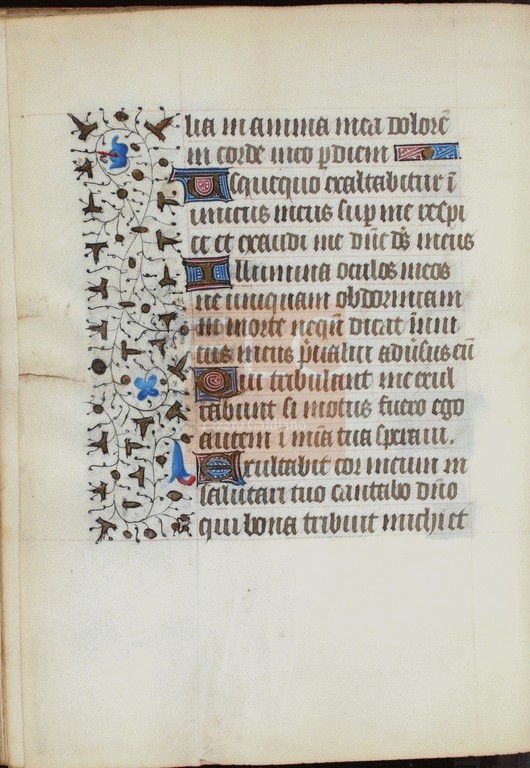 lia in anima mea dolorē
in corde meo ꝑ diem
Usquequo exaltabitur ī
imicus meus sup me respi
ce et exaudi me dn̄e ds̄ meus
Illumina oculos meos
ne unquam obdormiam
in morte neqn̄ dicat inim
cus meus p̄ualui aduersus eū
Qui tribulant me exul
tabunt si motus fuero ego
autem ī mīa tua speraui.
Exultabit cor meum in
salutari tuo cantabo dn̄o
qui bona tribuit michi et